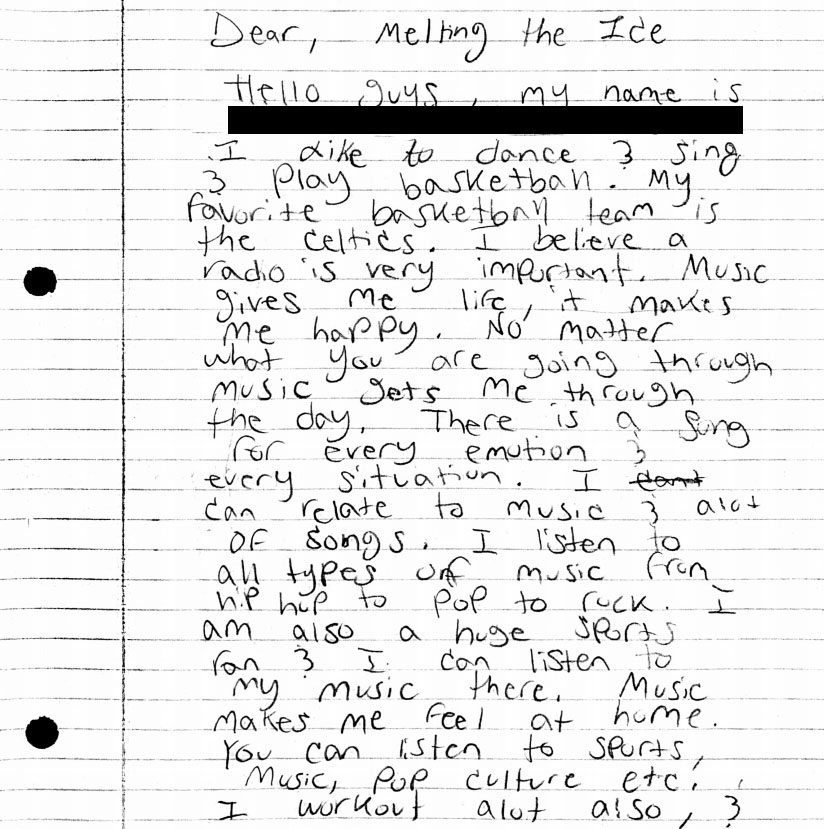 Dear, Melting the Ice
Hello guys, my name is
. I like to dance & sing
& Play basketball. My
favorite basketball team is
the celtics. I believe a
radio is very important. Music
gives Me life, it makes
me happy. No matter
what you are going through
music gets Me through
the day. There is a song
for every emotion &
every situation. I dont
can relate to music & alot
of songs. I listen to
all types of music from
hip hop to Pop to rock. I
am also a huge sports
fan & I can listen to
my music there. Music
makes me feel at home.
You can listen to sports,
Music, Pop culture etc.
I workout alot also, &